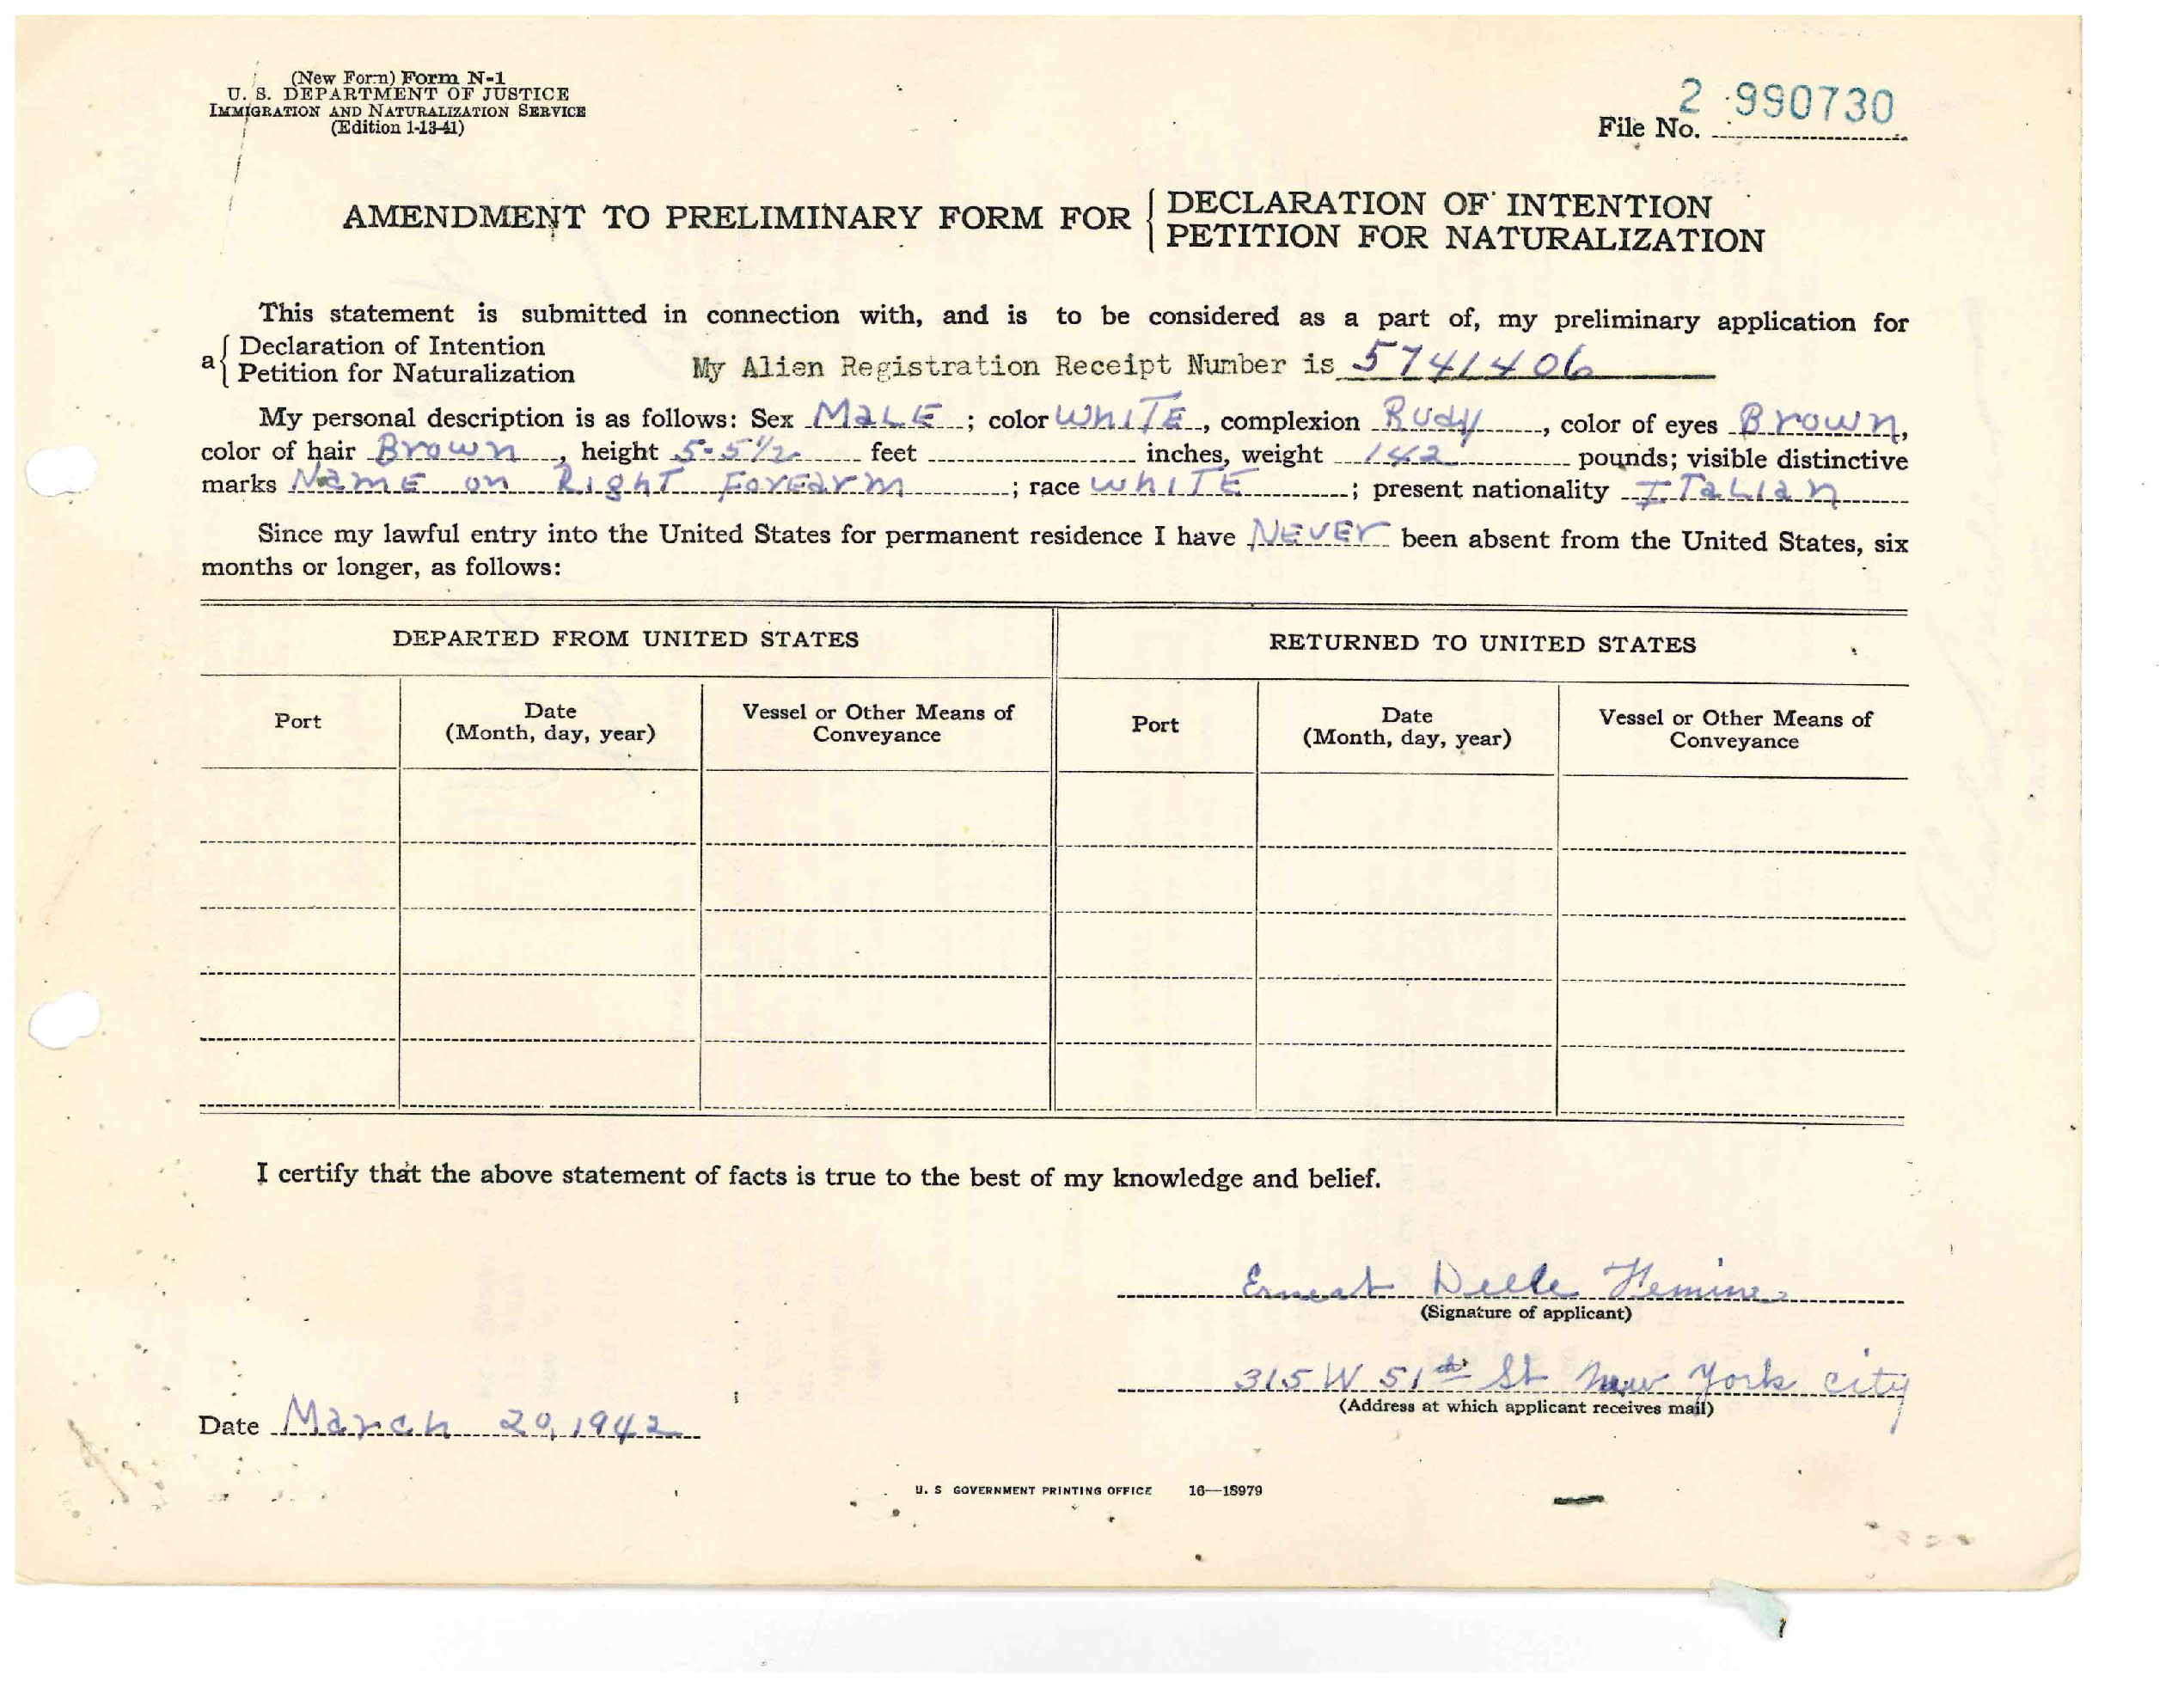 (New Form) Form N-1
U. S. DEPARTMENT OF JUSTICE
IMMIGRATION AND NATURALIZATION SERVICE
(Edition 1-13-41)
2 990730
File No.
AMENDMENT TO PRELIMINARY FORM FOR { DECLARATION OF INTENTION
PETITION FOR NATURALIZATION
This statement is submitted in connection with, and is to be considered as a part of, my preliminary application for
a { Declaration of Intention
Petition for Naturalization My Alien Registration Receipt Number is 5741406
My personal description is as follows: Sex MaLE ; color WhITE , complexion Rudy , color of eyes Brown ,
color of hair Brown , height 5-5½ feet inches, weight 142 pounds; visible distinctive
marks NamE on RighT ForEarm ; race whITE ; present nationality ITaLian
Since my lawful entry into the United States for permanent residence I have NEVEr been absent from the United States, six
months or longer, as follows:
DEPARTED FROM UNITED STATES RETURNED TO UNITED STATES
Port Date (Month, day, year) Vessel or Other Means of Conveyance Port Date (Month, day, year) Vessel or Other Means of Conveyance
I certify that the above statement of facts is true to the best of my knowledge and belief.
Ernest Delle Femine
(Signature of applicant)
315 W 51th St New York city
(Address at which applicant receives mail)
Date March 20, 1942
U. S GOVERNMENT PRINTING OFFICE 16—18979